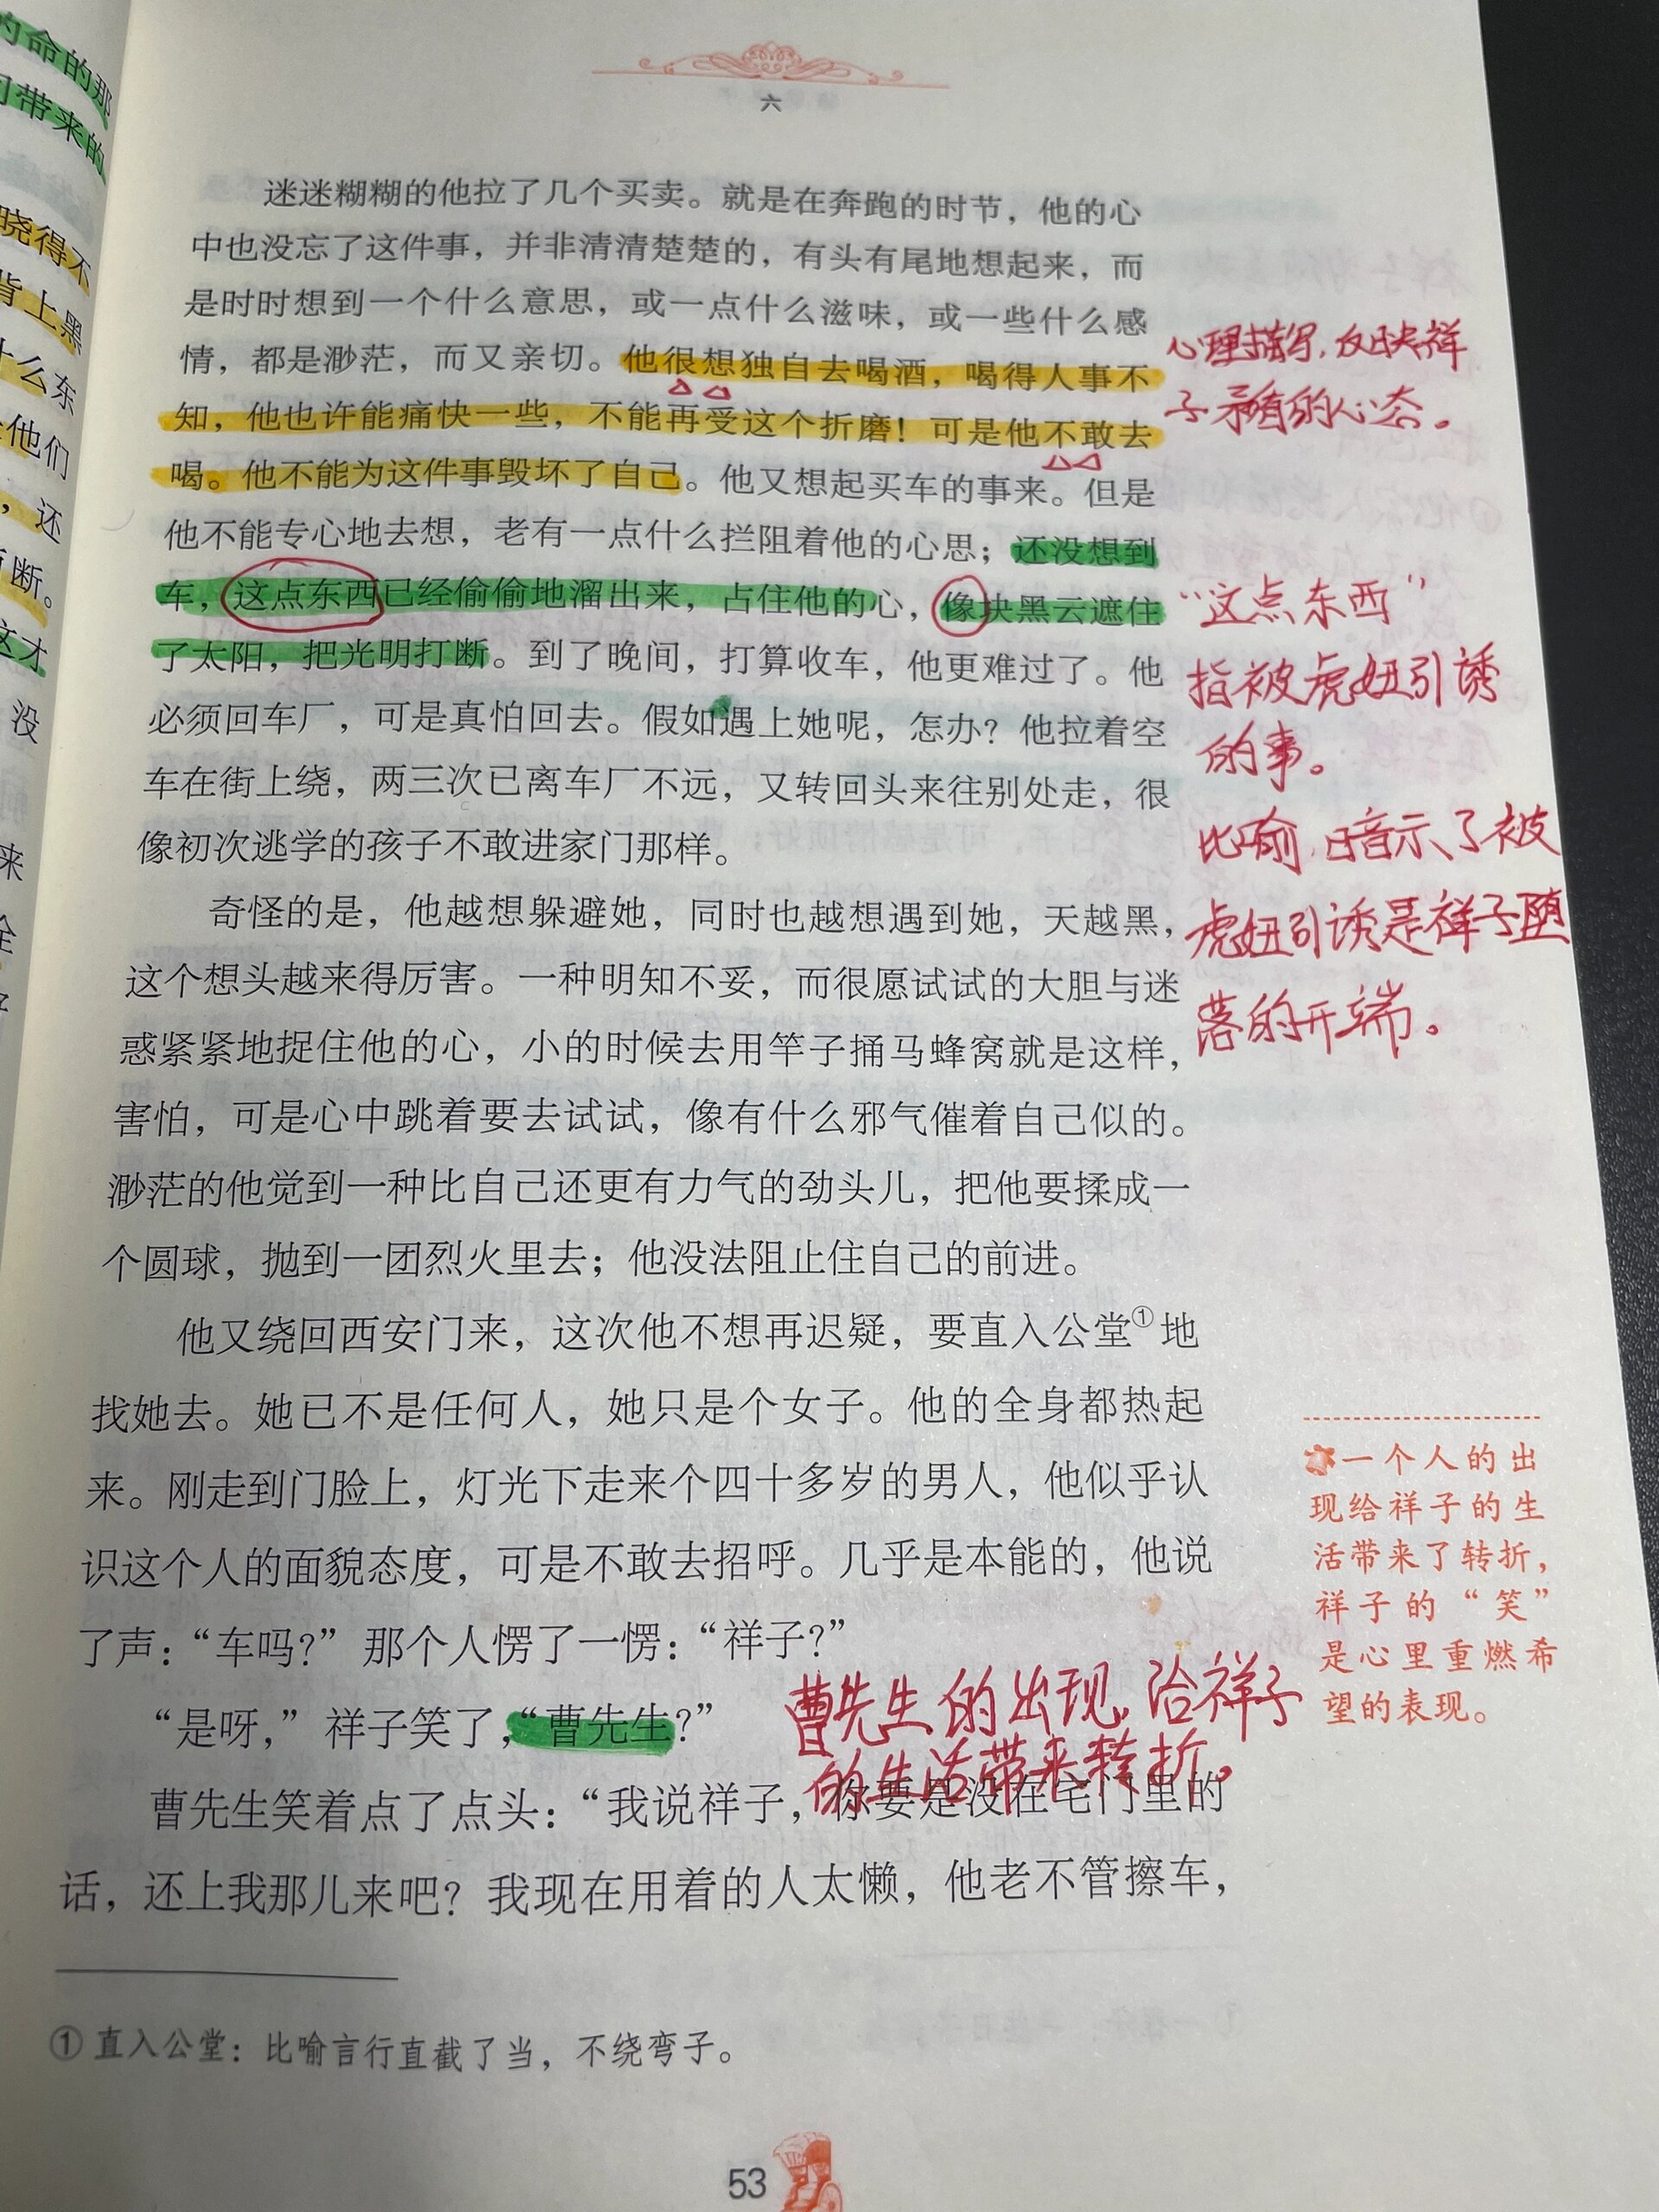 的命的那
带来的
晓得不
背上黑
什么东
他们
，还
断。
这才
没
来
全
六
迷迷糊糊的他拉了几个买卖。就是在奔跑的时节，他的心
中也没忘了这件事，并非清清楚楚的，有头有尾地想起来，而
是时时想到一个什么意思，或一点什么滋味，或一些什么感
情，都是渺茫，而又亲切。他很想独自去喝酒，喝得人事不
知，他也许能痛快一些，不能再受这个折磨！可是他不敢去
喝。他不能为这件事毁坏了自己。他又想起买车的事来。但是
他不能专心地去想，老有一点什么拦阻着他的心思；还没想到
车，这点东西已经偷偷地溜出来，占住他的心，像块黑云遮住
了太阳，把光明打断。到了晚间，打算收车，他更难过了。他
必须回车厂，可是真怕回去。假如遇上她呢，怎办？他拉着空
车在街上绕，两三次已离车厂不远，又转回头来往别处走，很
像初次逃学的孩子不敢进家门那样。
奇怪的是，他越想躲避她，同时也越想遇到她，天越黑，
这个想头越来得厉害。一种明知不妥，而很愿试试的大胆与迷
惑紧紧地捉住他的心，小的时候去用竿子捅马蜂窝就是这样，
害怕，可是心中跳着要去试试，像有什么邪气催着自己似的。
渺茫的他觉到一种比自己还更有力气的劲头儿，把他要揉成一
个圆球，抛到一团烈火里去；他没法阻止住自己的前进。
他又绕回西安门来，这次他不想再迟疑，要直入公堂①地
找她去。她已不是任何人，她只是个女子。他的全身都热起
来。刚走到门脸上，灯光下走来个四十多岁的男人，他似乎认
识这个人的面貌态度，可是不敢去招呼。几乎是本能的，他说
了声：“车吗？”那个人愣了一愣：“祥子？”
“是呀，”祥子笑了，“曹先生？”
曹先生笑着点了点头：“我说祥子，你要是没在宅门里的
话，还上我那儿来吧？我现在用着的人太懒，他老不管擦车，
心理描写，反映祥
子矛盾的心态。
“这点东西”
指被虎妞引诱
的事。
比喻，暗示了被
虎妞引诱是祥子堕
落的开端。
一个人的出
现给祥子的生
活带来了转折，
祥子的“笑”
是心里重燃希
望的表现。
曹先生的出现，给祥子
的生活带来转折。
① 直入公堂：比喻言行直截了当，不绕弯子。
53